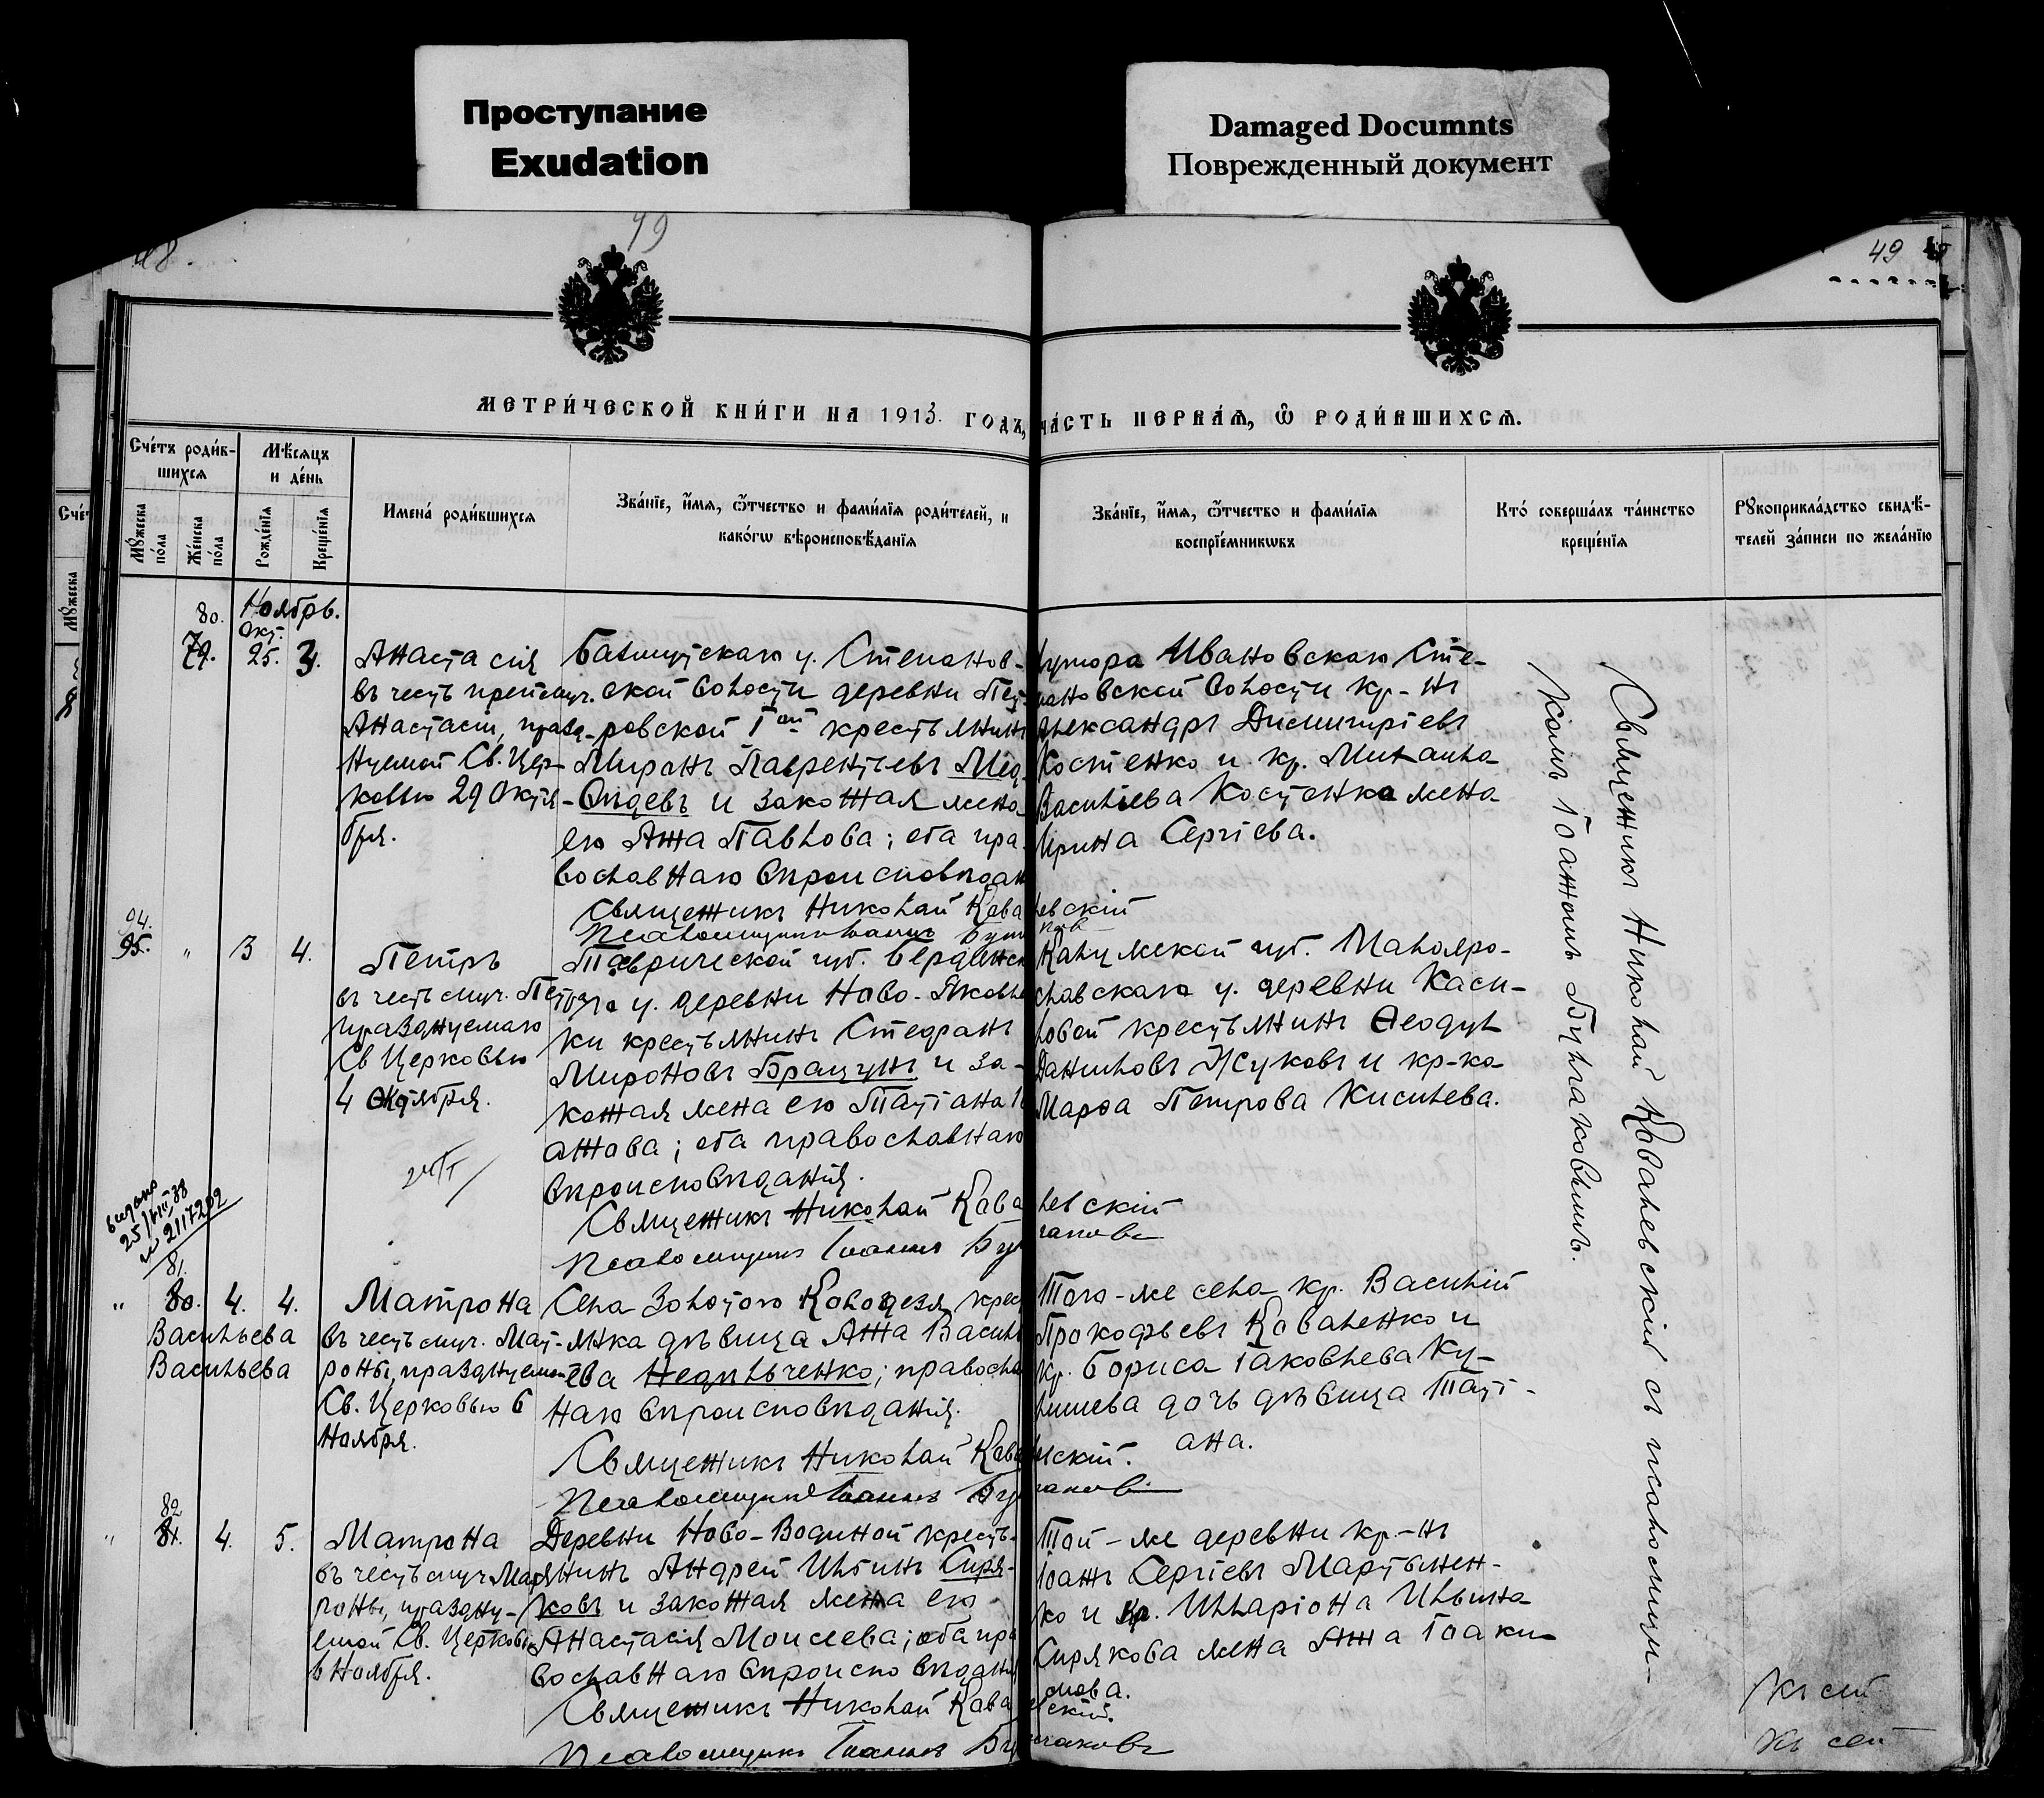 Проступание
Exudation
Damaged Documnts
Поврежденный документ
49
49
МЕТРИ́ЧЕСКОЙ КНИ́ГИ НА 1913. ГОДЪ,
ЧА́СТЬ ПЕРВАѦ, Ѡ РОДИ́ВШИХСѦ.
Сче́тъ роди́в-
шихсѧ
Мѣ́сѧцъ
и де́нь
Мꙋ́жеска
по́ла
Же́нска
по́ла
Рожде́нїѧ
Креще́нїѧ
Имена́ роди́вшихсѧ
Зва́нїе, и́мѧ, ѻ́тчество и фами́лїѧ роди́телей, и
како́гѡ вѣроисповѣ́данїѧ
Зва́нїе, и́мѧ, ѻ́тчество и фами́лїѧ
воспрїе́мникѡвъ
Кто́ соверша́лъ та́инство
креще́нїѧ
Рꙋкоприкла́дство свидѣ́-
телей за́писи по жела́нїю
Ноябрь.
80.
79.
Окт.
25.
3.
Анастасія
въ честь преп. муч.
Анастасіи, праздн-
нуемой Св. Цер-
ковью 29 Октя-
бря.
Бахмутскаго у. Степанов-
ской волости деревни Пет-
ровской 1ой крестьянинъ
Миронъ Лаврентьевъ Мед-
вѣдевъ и законная жена
его Анна Павлова; оба пра-
вославнаго вѣроисповѣдан
Священникъ Николай Ковалевскій
Псаломщикъ Іоаннъ
хутора Ивановскаго Сте-
пановской волости кр-нъ
Александръ Димитріевъ
Костенко и кр. Михаила
Васильева Костенка жена
Ирина Сергіева.
94.
95.
"
3
4.
Петръ
въ честь муч. Петра
празднуемаго
Св Церковью
4 Октября.
Таврической губ. Бердянск
у. деревни Ново-Яковлев
ки крестьянинъ Стефанъ
Мироновъ Брацунъ и за-
конная жена его Татіана Іо
аннова; оба православнаго
вѣроисповѣданія.
Священникъ Николай Ковалевскій
Псаломщикъ Іоаннъ Булгаковъ
Калужской губ. Малояро-
славскаго у. деревни Каси-
ловой крестьянинъ Ѳеодулъ
Даниловъ Жуковъ и кр-ка
Марѳа Петрова Киселева.
выдано
25/VIII 38
№ 2117202
81.
"
80.
4.
4.
Васильева
Васильева
Матрона
въ честь муч. Мат-
роны, празднуемой
Св. Церковью 6
Ноября.
Села Золотого Колодезя крес
янка дѣвица Анна Василь
ева Недѣльченко; православ
наго вѣроисповѣданія.
Священникъ Николай Ковалевскій.
Псаломщикъ Іоаннъ Булгаковъ
Того-же села кр. Василій
Прокофьевъ Коваленко и
кр. Бориса Іаковлева Ку-
лишева дочь дѣвица Таті-
ана.
82
81.
"
4.
5.
Матрона
въ честь муч. Мат
роны, праздну-
емой Св. Церковью
6 Ноября.
Деревни Ново-Водяной кресть-
янинъ Андрей Ильинъ Сиря-
ковъ и законная жена его
Анастасія Моисеева; оба пра
вославнаго вѣроисповѣданія
Священникъ Николай Ковалевскій.
Псаломщикъ Іоаннъ Булгаковъ
Той-же деревни кр.-нъ
Іоаннъ Сергіевъ Мартынен-
ко и кр. Илларіона Ильина
Сирякова жена Анна Іоаки-
мова.
Священникъ Николай Ковалевскій съ псаломщи-
комъ Іоанномъ Булгаковымъ.